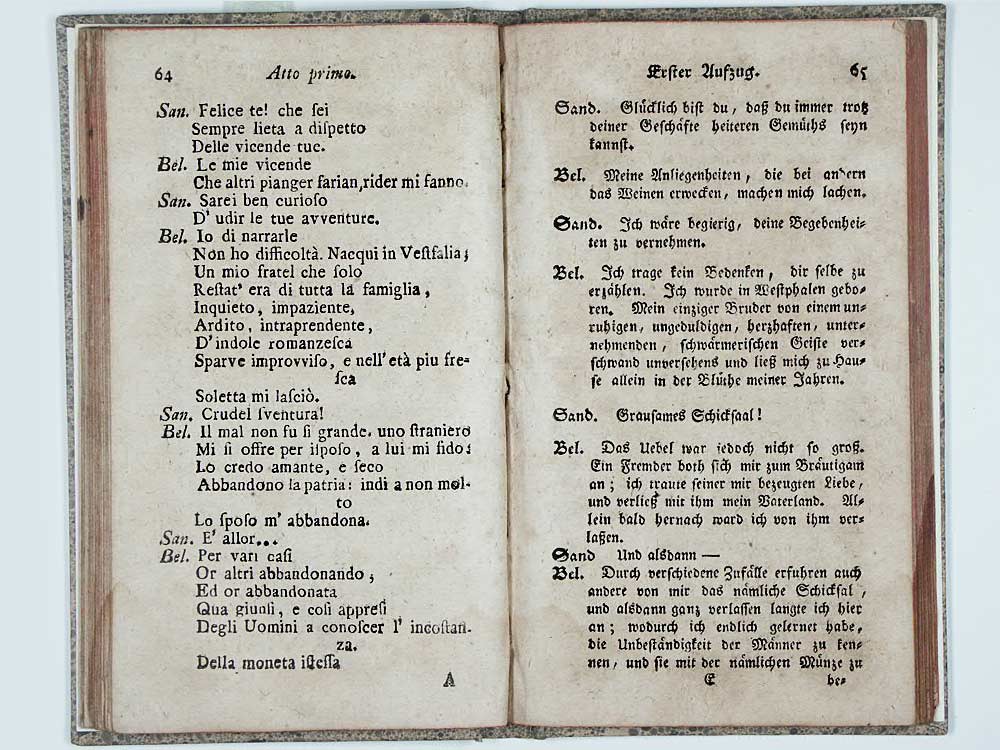 64 Atto primo.
San. Felice te! che ſei
Sempre lieta a diſpetto
Delle vicende tue.
Bel. Le mie vicende
Che altri pianger farian, rider mi fanno.
San. Sarei ben curioſo
D' udir le tue avventure.
Bel. Io di narrarle
Non ho difficoltà. Nacqui in Veſtfalia;
Un mio fratel che ſolo
Reſtat' era di tutta la famiglia,
Inquieto, impaziente,
Ardito, intraprendente,
D'indole romanzeſca
Sparve improvviſo, e nell' età piu fre-
ſca
Soletta mi laſciò.
San. Crudel ſventura!
Bel. Il mal non fu ſi grande. uno ſtraniero
Mi ſi offre per iſpoſo, a lui mi fido:
Lo credo amante, e ſeco
Abbandono la patria: indi a non mol-
to
Lo ſpoſo m' abbandona.
San. E' allor...
Bel. Per vari caſi
Or altri abbandonando;
Ed or abbandonata
Qua giunſi, e coſi appreſi
Degli Uomini a conoſcer l' incoſtan-
za.
Della moneta iſteſſa
A
Erſter Aufzug. 65
Sand. Glücklich biſt du, daß du immer trotz
deiner Geſchäfte heiteren Gemüths ſeyn
kannſt.
Bel. Meine Anliegenheiten, die bei andern
das Weinen erwecken, machen mich lachen.
Sand. Ich wäre begierig, deine Begebenhei-
ten zu vernehmen.
Bel. Ich trage kein Bedenken, dir ſelbe zu
erzählen. Ich wurde in Weſtphalen gebo-
ren. Mein einziger Bruder von einem un-
ruhigen, ungeduldigen, herzhaften, unter-
nehmenden, ſchwärmeriſchen Geiſte ver-
ſchwand unverſehens und ließ mich zu Hau-
ſe allein in der Blüthe meiner Jahren.
Sand. Grauſames Schickſaal!
Bel. Das Uebel war jedoch nicht ſo groß.
Ein Fremder both ſich mir zum Bräutigam
an; ich traute ſeiner mir bezeugten Liebe,
und verließ mit ihm mein Vaterland. Al-
lein bald hernach ward ich von ihm ver-
laßen.
Sand Und alsdann —
Bel. Durch verſchiedene Zufälle erfuhren auch
andere von mir das nämliche Schickſal,
und alsdann ganz verlaſſen langte ich hier
an; wodurch ich endlich gelernet habe,
die Unbeſtändigkeit der Männer zu ken-
nen, und ſie mit der nämlichen Münze zu
E be-